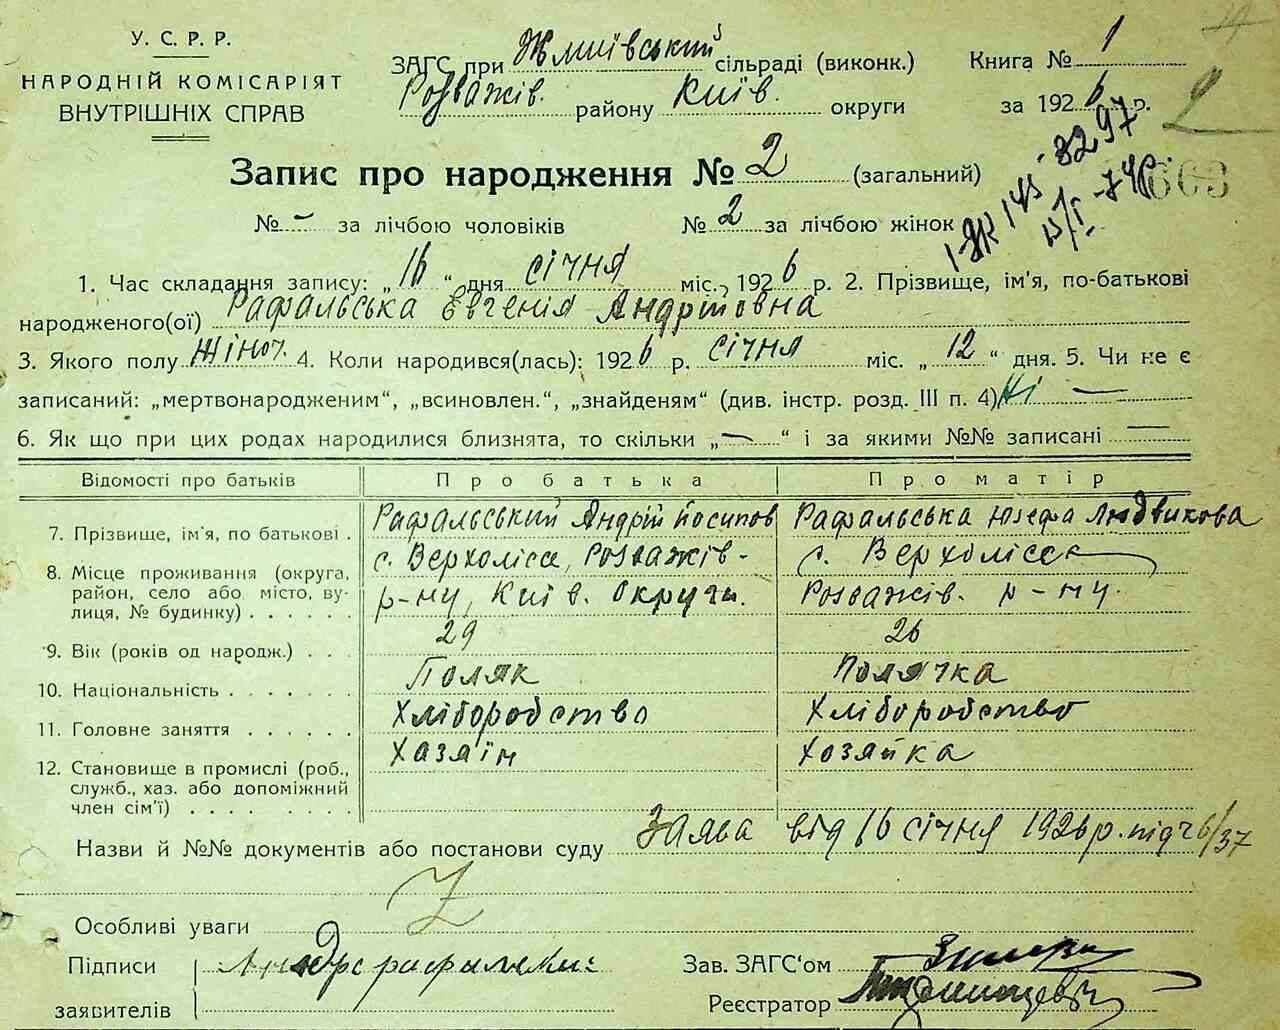 У. С. Р. Р.
НАРОДНІЙ КОМІСАРІЯТ
ВНУТРІШНІХ СПРАВ
ЗАГС при Жмиївський сільраді (виконк.) Книга № 1
Розважів. району Київ. округи за 1926 р.
2
Запис про народження № 2 (загальний)
603
№ – за лічбою чоловіків № 2 за лічбою жінок
1. Час складання запису: „16“ дня січня міс., 1926 р. 2. Прізвище, ім'я, по-батькові
народженого(ої) Рафальська Євгенія Андріївна
3. Якого полу жіноч. 4. Коли народився(лась): 1926 р. січня міс. „12“ дня. 5. Чи не є
записаний: „мертвонародженим“, „всиновлен.“, „знайденям“ (див. інстр. розд. III п. 4) Ні —
6. Як що при цих родах народилися близнята, то скільки „—“ і за якими №№ записані —
Відомості про батьків Про батька Про матір
7. Прізвище, ім'я, по батькові . Рафальський Андрій Йосипов Рафальська Юзефа Людвикова
8. Місце проживання (округа, район, село або місто, вулиця, № будинку) . . . . . . с. Верхолісся, Розважів- р-ну, Київ. Округи. с. Верхолісся Розважів. р-ну.
9. Вік (років од народж.) . . . 29 26
10. Національність . . . . . . . Поляк Полячка
11. Головне заняття . . . . . . Хліборобство Хліборобство
12. Становище в промислі (роб., служб., хаз. або допоміжний член сім'ї) . . . . . . . . Хазяїн Хозяйка
Назви й №№ документів або постанови суду Заява від 16 січня 1926 р. під ч 6/37
Особливі уваги Z
Підписи
заявителів
Зав. ЗАГС'ом
Реєстратор